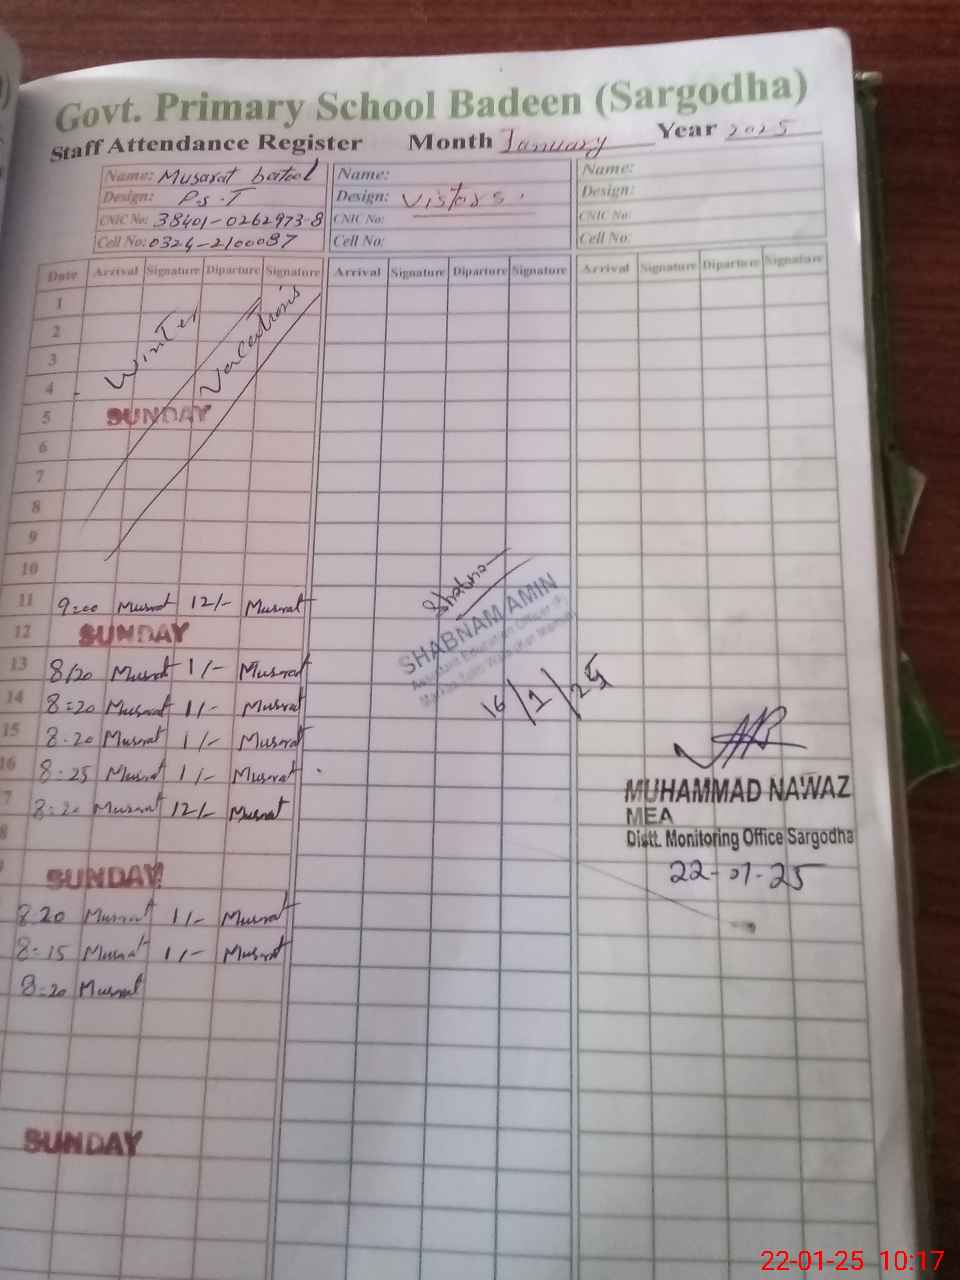 Govt. Primary School Badeen (Sargodha)
Staff Attendance Register Month January Year 2025
Name: Musarat batool Name: Name:
Design: P.S.T Design: Vistors. Design:
CNIC No: 38401-0262973-8 CNIC No: CNIC No:
Cell No: 0324-2100087 Cell No: Cell No:
Date Arrival Signature Diparture Signature Arrival Signature Diparture Signature Arrival Signature Diparture Signature
1
2
3
4
Winter Vacations
5 SUNDAY
6
7
8
9
10
11 9:00 Musrat 12/- Musrat
12 SUNDAY
13 8/20 Musrat 1/- Musrat
14 8:20 Musarat 1/- Musrat
15 8-20 Musrat 1/- Musrat
16 8:25 Musrat 1/- Musrat
7 8:20 Musrat 12/- Musrat
8
SUNDAY
8 20 Musrat 1/- Musrat
8:15 Musrat 1/- Musrat
8:20 Musrat
SUNDAY
SHABNAM AMIN
Assistant Education Officer
16/1/25
MUHAMMAD NAWAZ
MEA
Distt. Monitoring Office Sargodha
22-01-25
22-01-25 10:17